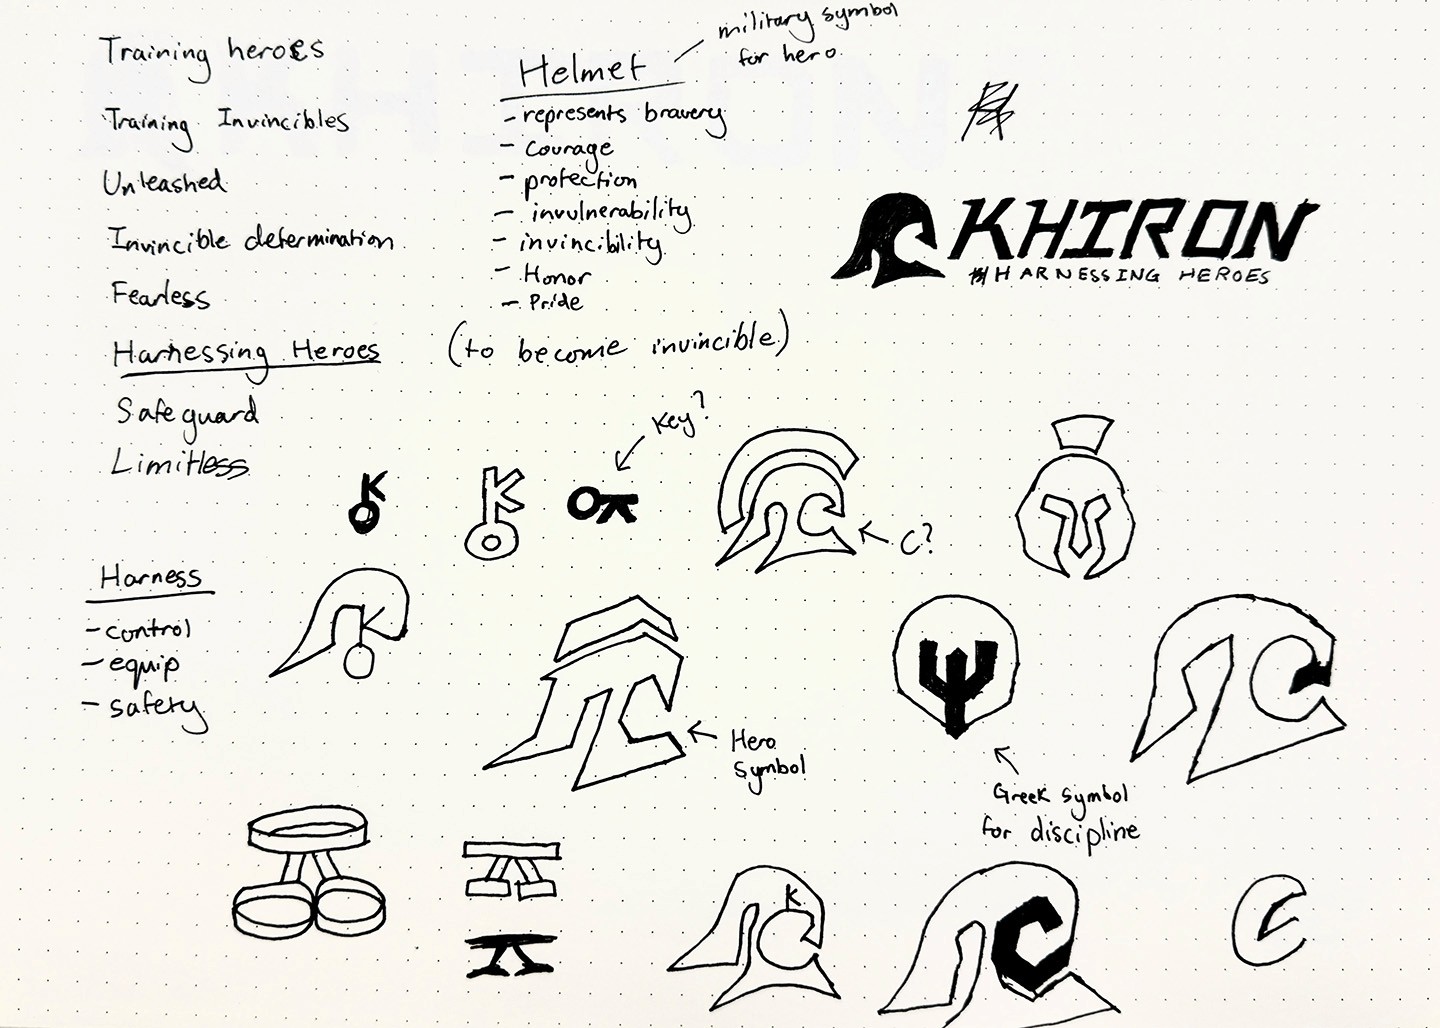 Training heroes
Training Invincibles
Unleashed
Invincible determination
Fearless
Harnessing Heroes (to become invincible)
Safeguard
Limitless
Helmet
military symbol
for hero
- represents bravery
- Courage
- protection
- invulnerability
- invincibility
- Honor
- Pride
KHIRON
HARNESSING HEROES
K
K
Key?
C?
Harness
- control
- equip
- safety
K
Hero
symbol
Greek symbol
for discipline
K